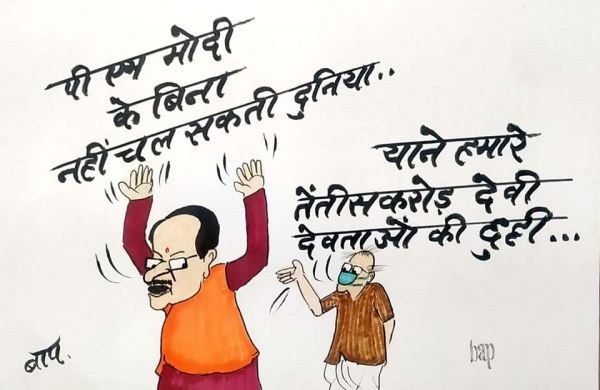 पी एम मोदी
के बिना
नहीं चल सकती दुनिया..
याने हमारे
तेंतीसकरोड़ देवी
देवताओं की छुट्टी...
बाप.
bap